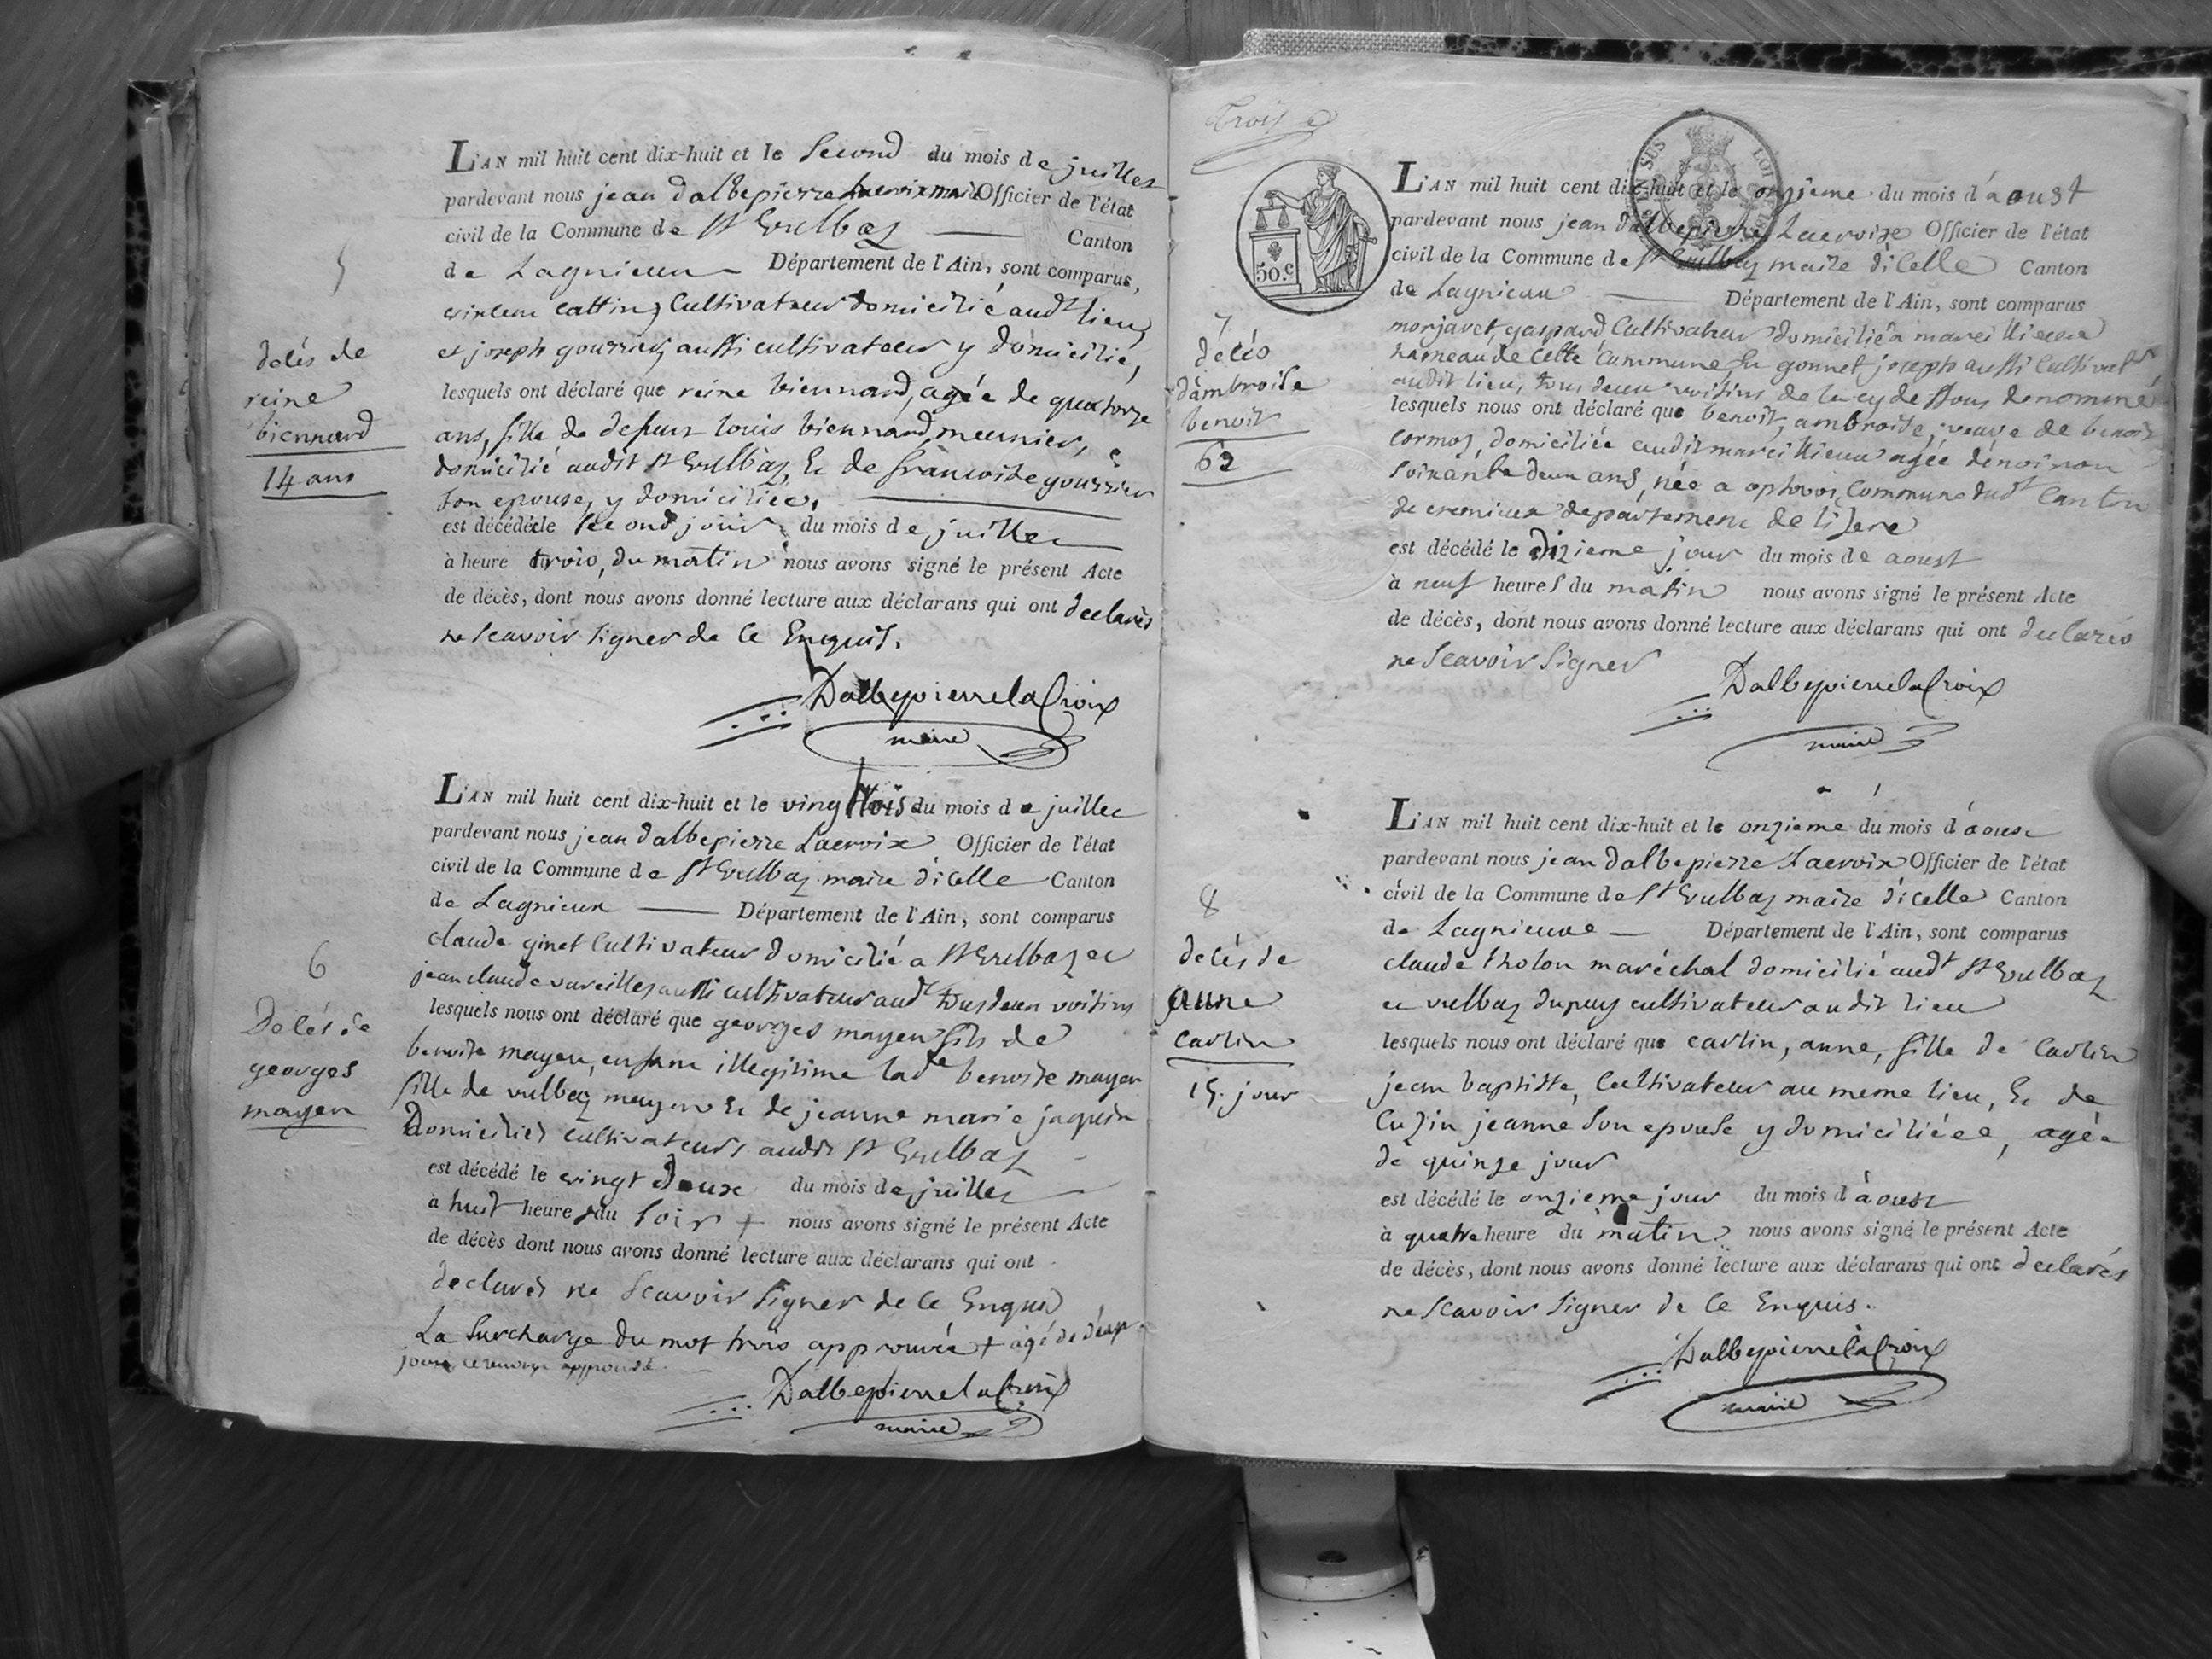 5
décés de
reine
biennard
14 ans
L'AN mil huit cent dix-huit et le second du mois de juillet
pardevant nous jean dalbepierre Lacroix maire Officier de l'état
civil de la Commune de St Vulbaz Canton
de Lagnieux Département de l'Ain, sont comparus,
vincent cattin, Cultivateur domicilié audt lieu,
et joseph gourrier, aussi cultivateur y domicilié,
lesquels ont déclaré que reine biennard, agée de quatorze
ans, fille de defunt louis biennard, meunier,
domicilié audit St Vulbaz, Et de francoise gourrier
son epouse, y domiciliée,
est décédéele second jour du mois de juillet
à heure trois, du matin nous avons signé le présent Acte
de décès, dont nous avons donné lecture aux déclarans qui ont declarés
ne scavoir signer de ce Enquis.
DalbepierrelaCroix
maire
6
Décés de
georges
mayen
L'AN mil huit cent dix-huit et le vingt trois du mois de juillet
pardevant nous jean dalbepierre Lacroix Officier de l'état
civil de la Commune de St Vulbaz maire d'icelle Canton
de Lagnieux Département de l'Ain, sont comparus
claude ginet Cultivateur domicilié a St Vulbaz et
jean claude vareilles aussi cultivateur audt tous deux voisins
lesquels nous ont déclaré que georges mayen fils de
benoite mayen, enfant illegitime lade benoite mayen
fille de vulbaz mayen Et de jeanne marie jaquin
Domiciliés cultivateurs audit St Vulbaz
est décédé le vingt deux du mois de juillet
à huit heures du soir + nous avons signé le présent Acte
de décès dont nous avons donné lecture aux déclarans qui ont
declarés ne scavoir signer de ce Enquis
La surcharge du mot trois approuvée + agé de deux
jours, ce renvoye approuvé.
DalbepierrelaCroix
maire
trois
50 c.
7
décés
dambroise
benoit
62
L'AN mil huit cent dix-huit et le onzieme du mois d'aoust
pardevant nous jean dalbepierre Lacroixe Officier de l'état
civil de la Commune de St Vulbaz maire d'icelle Canton
de Lagnieux Département de l'Ain, sont comparus
monjavet, gaspard, Cultivateur domicilié a marcillieux
hameau de cette Commune Et gonnet joseph aussi Cultivatr
audit lieu, tous deux voisins de la cy dessous denommé
lesquels nous ont déclaré que benoit, ambroise, veuve de benoit
cormoz, domiciliée audit marcillieux agée d'environ
soixante deux ans, née a optevoz, Commune dudt Canton
de cremieux departement de lisere
est décédé le dizieme jour du mois de aoust
à neuf heures du matin nous avons signé le présent Acte
de décès, dont nous avons donné lecture aux déclarans qui ont declarés
ne scavoir signer
DalbepierrelaCroix
maire
8
decés de
anne
carlin
15. jour
L'AN mil huit cent dix-huit et le onzieme du mois d'aoust
pardevant nous jean dalbepierre Lacroix Officier de l'état
civil de la Commune de St Vulbaz maire d'icelle Canton
de Lagnieuxe Département de l'Ain, sont comparus
claude tholon maréchal domicilié audt St Vulbaz
et vulbaz dupuy cultivateur audit lieu
lesquels nous ont déclaré que carlin, anne, fille de Carlin
jean baptiste, Cultivateur au meme lieu, Et de
Cuzin jeanne son epouse y domiciliéee, agée
de quinze jour
est décédé le onzieme jour du mois d'aoust
à quatre heure du matin nous avons signé le présent Acte
de décès, dont nous avons donné lecture aux déclarans qui ont declarés
ne scavoir signer de ce Enquis.
DalbepierrelaCroix
maire